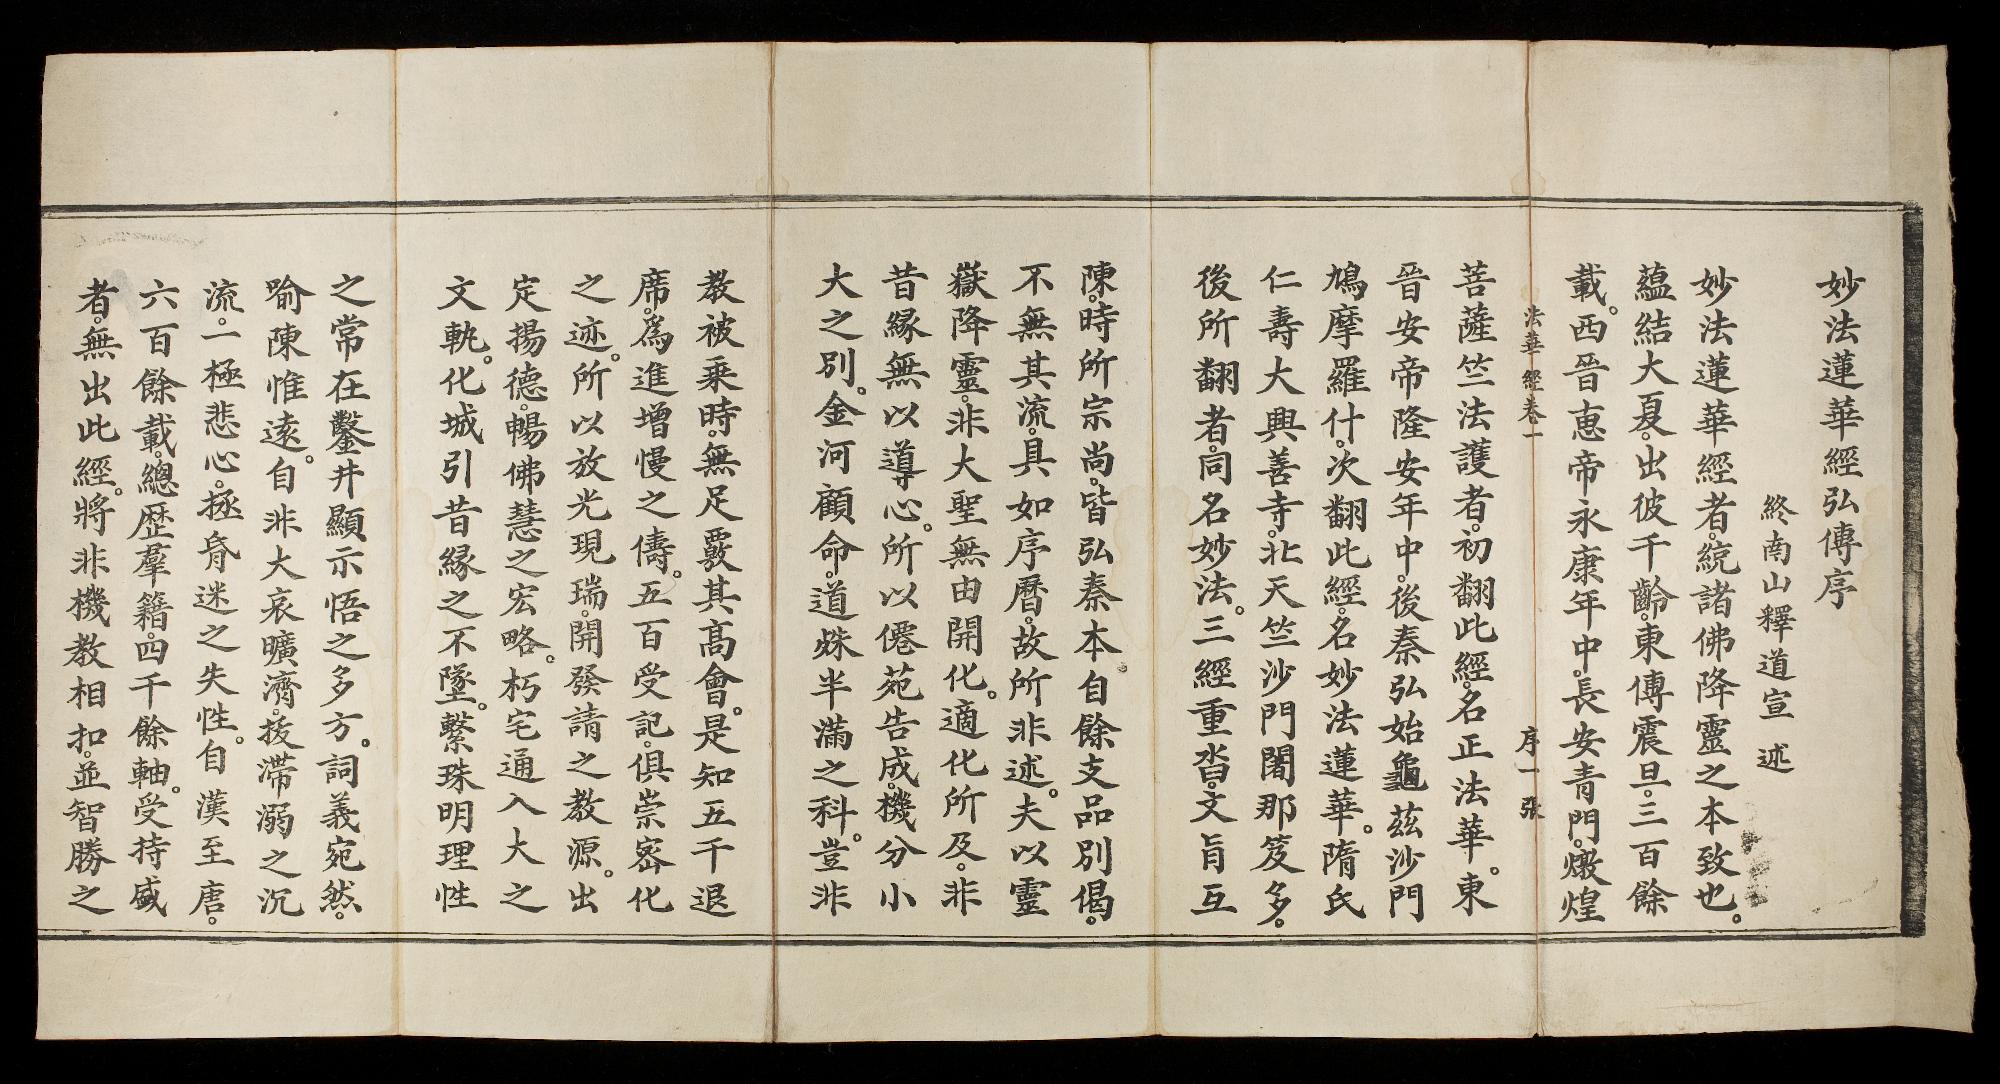 妙法蓮華經弘傳序
終南山釋道宣 述
妙法蓮華經者。統諸佛降靈之本致也。
蘊結大夏。出彼千齡。東傳震旦。三百餘
載。西晉惠帝永康年中。長安青門。燉煌
法華經卷一 序一張
菩薩竺法護者。初翻此經。名正法華。東
晉安帝隆安年中。後秦弘始。龜茲沙門
鳩摩羅什。次翻此經。名妙法蓮華。隋氏
仁壽大興善寺。北天竺沙門闍那笈多。
後所翻者。同名妙法。三經重沓。文旨互
陳。時所宗尚。皆弘秦本。自餘支品別偈。
不無其流。具如序曆。故所非述。夫以靈
嶽降靈。非大聖無由開化。適化所及。非
昔緣無以導心。所以僊苑告成。機分小
大之別。金河顧命。道殊半滿之科。豈非
教被乘時。無足覈其高會。是知五千退
席。為進增慢之儔。五百受記。俱崇密化
之迹。所以放光現瑞。開發請之教源。出
定揚德。暢佛慧之宏略。朽宅通入大之
文軌。化城引昔緣之不墜。繫珠明理性
之常在。鑿井顯示悟之多方。詞義宛然。
喻陳惟遠。自非大哀曠濟。拔滯溺之沉
流。一極悲心。拯昏迷之失性。自漢至唐。
六百餘載。總歷羣籍。四千餘軸。受持盛
者。無出此經。將非機教相扣。並智勝之